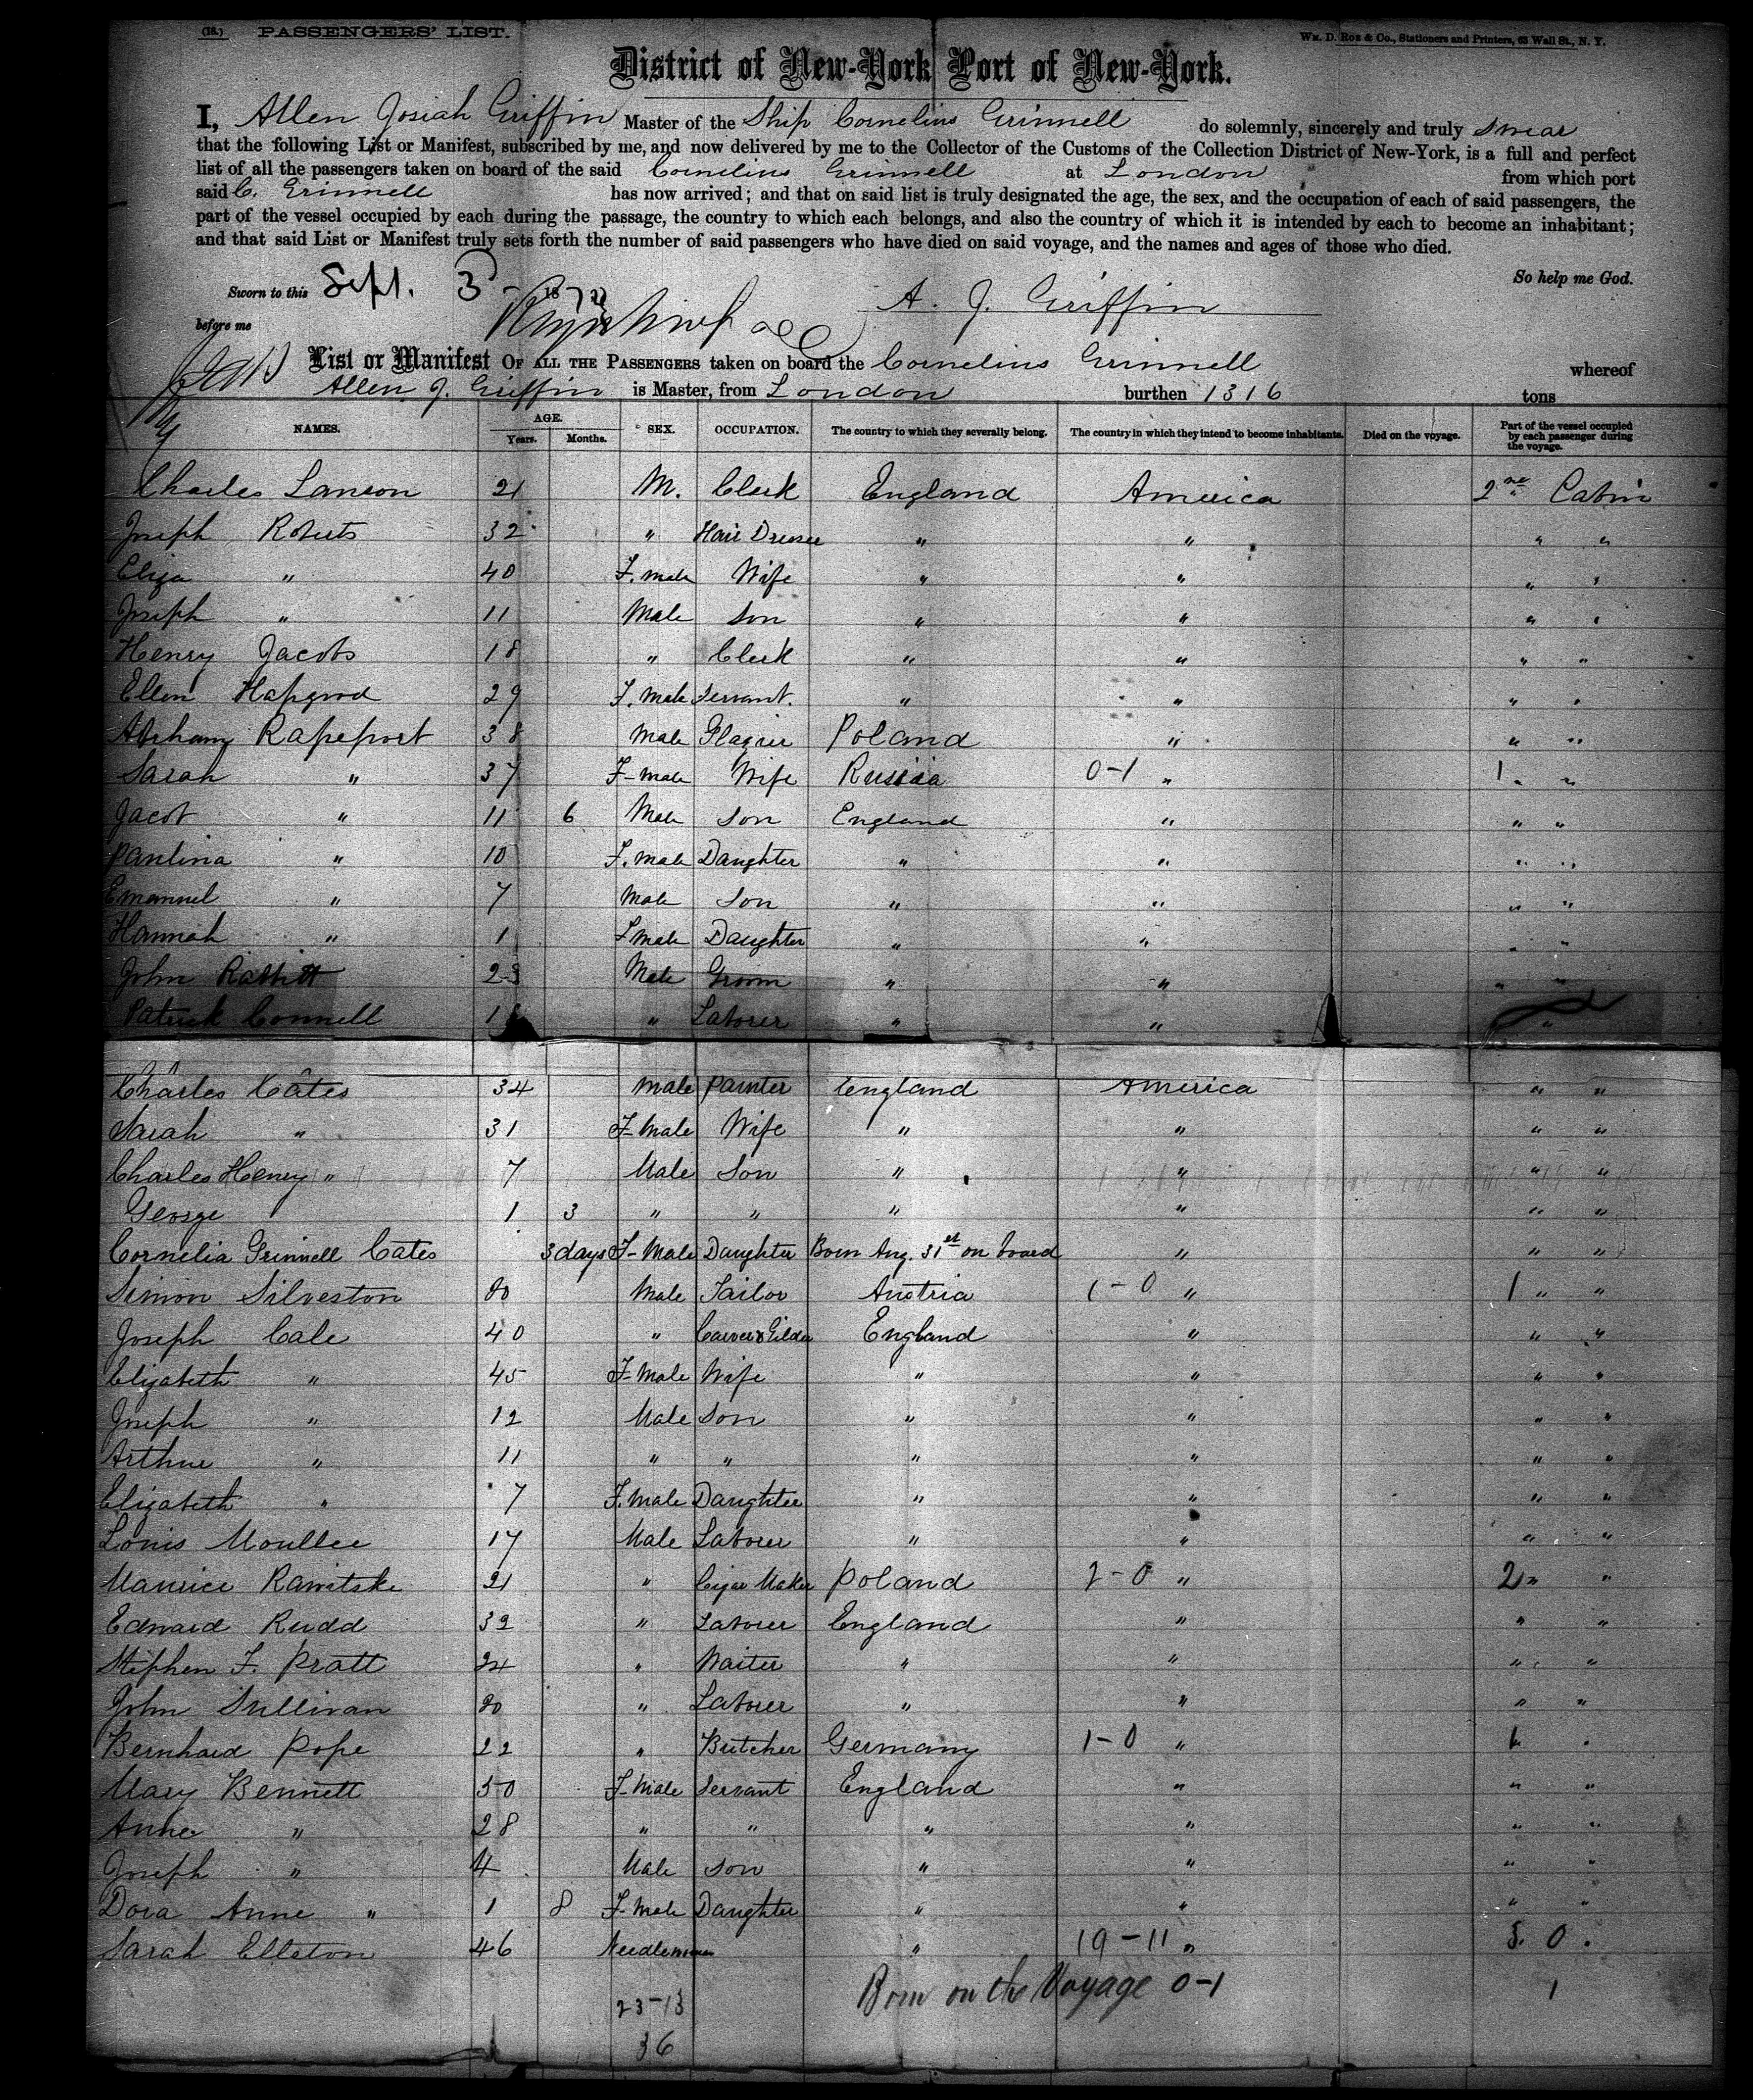 (18.) PASSENGERS' LIST.
WM. D. ROE & Co., Stationers and Printers, 63 Wall St., N. Y.
District of New-York Port of New-York.
I, Allen Josiah Griffin Master of the Ship Cornelius Grinnell do solemnly, sincerely and truly swear
that the following List or Manifest, subscribed by me, and now delivered by me to the Collector of the Customs of the Collection District of New-York, is a full and perfect
list of all the passengers taken on board of the said Cornelius Grinnell at London from which port
said C. Grinnell has now arrived; and that on said list is truly designated the age, the sex, and the occupation of each of said passengers, the
part of the vessel occupied by each during the passage, the country to which each belongs, and also the country of which it is intended by each to become an inhabitant;
and that said List or Manifest truly sets forth the number of said passengers who have died on said voyage, and the names and ages of those who died.
So help me God.
Sworn to this Sept. 3 187
A. J. Griffin
before me
List or Manifest OF ALL THE PASSENGERS taken on board the Cornelius Grinnell whereof
Allen J. Griffin is Master, from London burthen 1316 tons
NAMES. AGE. Years. Months. SEX. OCCUPATION. The country to which they severally belong. The country in which they intend to become inhabitants. Died on the voyage. Part of the vessel occupied by each passenger during the voyage.
Charles Lanson 21 M. Clerk England America 2nd Cabin
Joseph Roberts 32 " Hair Dresser " " " "
Eliza " 40 F. male Wife " " " "
Joseph " 11 Male Son " " " "
Henry Jacobs 18 " Clerk " " " "
Ellen Hapgood 29 F. male Servant. " " " "
Abraham Rapeport 38 Male Glazier Poland " " "
Sarah " 37 F-male Wife Russia 0-1 " 1 " "
Jacob " 11 6 Male Son England " " "
Paulina " 10 F. male Daughter " " " "
Emanuel " 7 Male Son " " " "
Hannah " 1 F male Daughter " " " "
John Rabbitt 23 Male Groom " " " "
Patrick Connell " Laborer " " "
Charles Cates 34 Male Painter England America " "
Sarah " 31 F-Male Wife " " " "
Charles Henry " 7 Male Son " " " "
George 1 3 " " " " " "
Cornelia Grinnell Cates 3 days F-Male Daughter Born Aug. 31st on board " " "
Simon Silveston 20 Male Tailor Austria 1-0 " 1 " "
Joseph Cale 40 " Carver & Gilder England " " "
Elizabeth " 45 F-Male Wife " " " "
Joseph " 12 Male Son " " " "
Arthur " 11 " " " " " "
Elizabeth " 7 F. Male Daughter " " " "
Louis Moullee 17 Male Laborer " " " "
Maurice Rawitske 21 " Cigar Maker Poland 2-0 " 2 " "
Edward Rudd 32 " Laborer England " " "
Stephen F. Pratt 24 " Waiter " " " "
John Sullivan 20 " Laborer " " " "
Bernhard Pope 22 " Butcher Germany 1-0 " 1 "
Mary Bennett 50 F-Male Servant England " " "
Anne " 28 " " " " " "
Joseph " 4 Male Son " " " "
Dora Anne " 1 8 F-Male Daughter " " " "
Sarah Elleton 46 Needlewoman " 19-11 " 0 "
Born on the Voyage 0-1 1
23-13
36